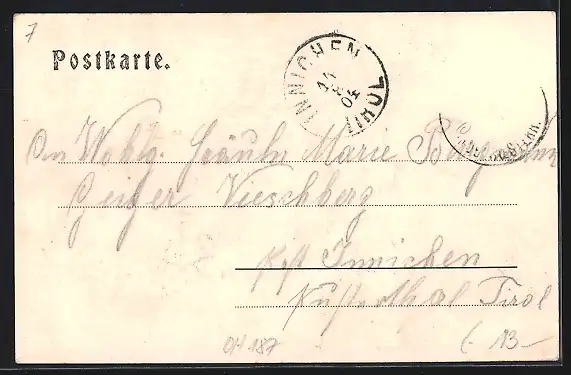 7
Postkarte.
INNICHEN
11 8 04
TIROL
An Wohlg. Fräuln Marie
Geiger Vieschberg
Pst Innichen
Pusterthal Tirol
OH 187
13-